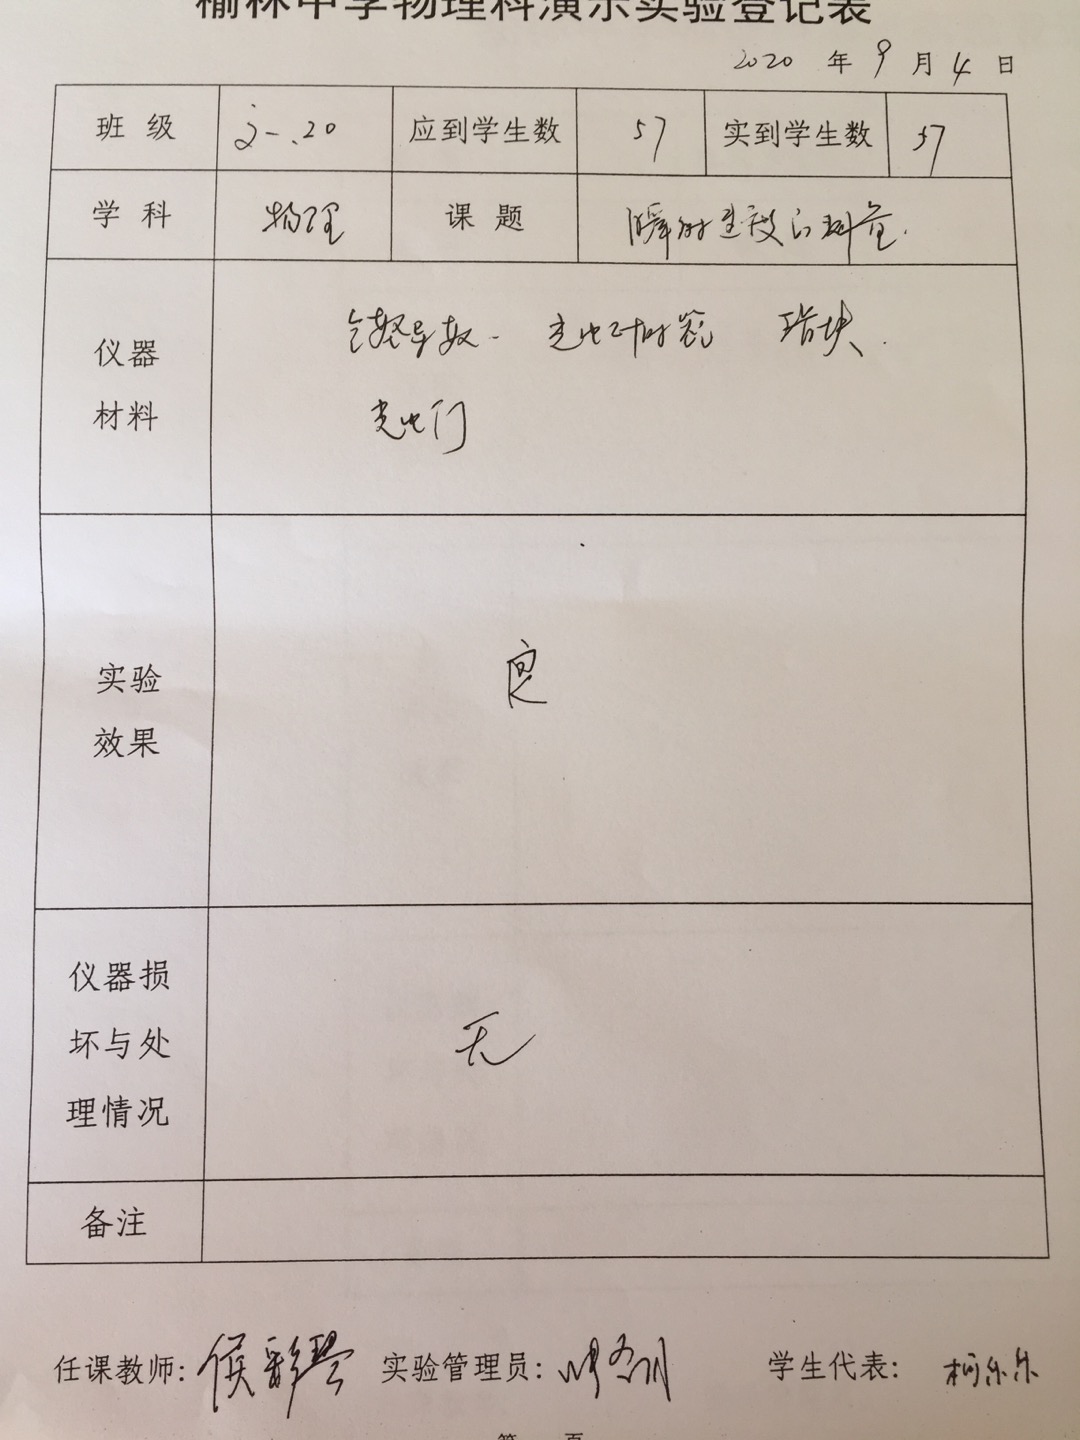 榆林中学物理科演示实验登记表
2020 年 9 月 4 日
班 级 20 应到学生数 57 实到学生数 57
学 科 物理 课 题 瞬时速度的测量.
仪器
材料
气垫导轨. 光电计时器 滑块.
光电门
实验
效果
良
仪器损
坏与处
理情况
无
备注
任课教师: 侯彩琴 实验管理员: 学生代表: 柯乐乐
第 页